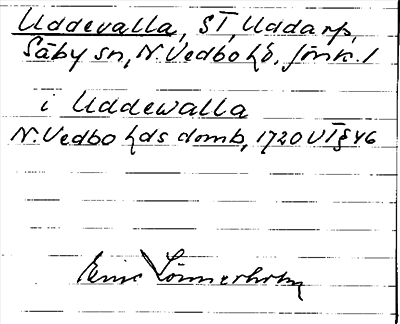 Uddevalla, ST, Uddarp,
Säby sn, N. Vedbo hd, Jönk. l
i Uddewalla
N. Vedbo hds domb, 1720 VT § 46
Eric Lönnerholm